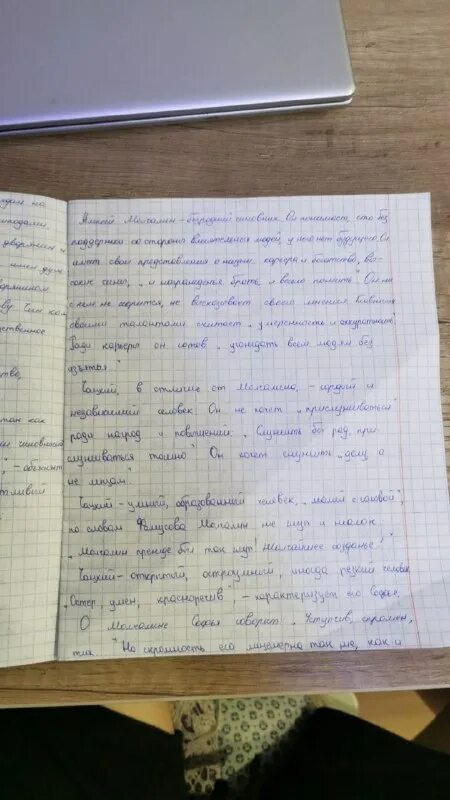 дам на
господами.
дворянин и
Алексей Молчалин – безродный чиновник. Он понимает, что без
поддержки со стороны влиятельных людей, у него нет будущего. Он
имеет свои представления о жизни, карьера и богатство,
и награжденья брать, и весело пожить". Он ни
с кем не ссорится, не высказывает своего мнения.
своими талантами считает „умеренность и аккуратность".
Ради карьеры он готов „угождать всем людям без
изъятья"
Чацкий, в отличие от Молчалина, – гордый и
независимый человек. Он не хочет „прислуживаться"
ради наград и повышений: „Служить бы рад, при-
служиваться тошно". Он хочет служить „делу, а
не лицам".
Чацкий – умный, образованный человек, „малый с головой",
по словам Фамусова. Молчалин не глуп и жалок,
„Молчалин прежде был так глуп! Жалчайшее созданье!"
Чацкий – открытый, остроумный, иногда резкий человек
„Остер, умен, красноречив", – характеризует его Софья.
О Молчалине Софья говорит: „Уступчив, скромен,
тих" Но скромность его мнимая так же, как и
ственное
так как